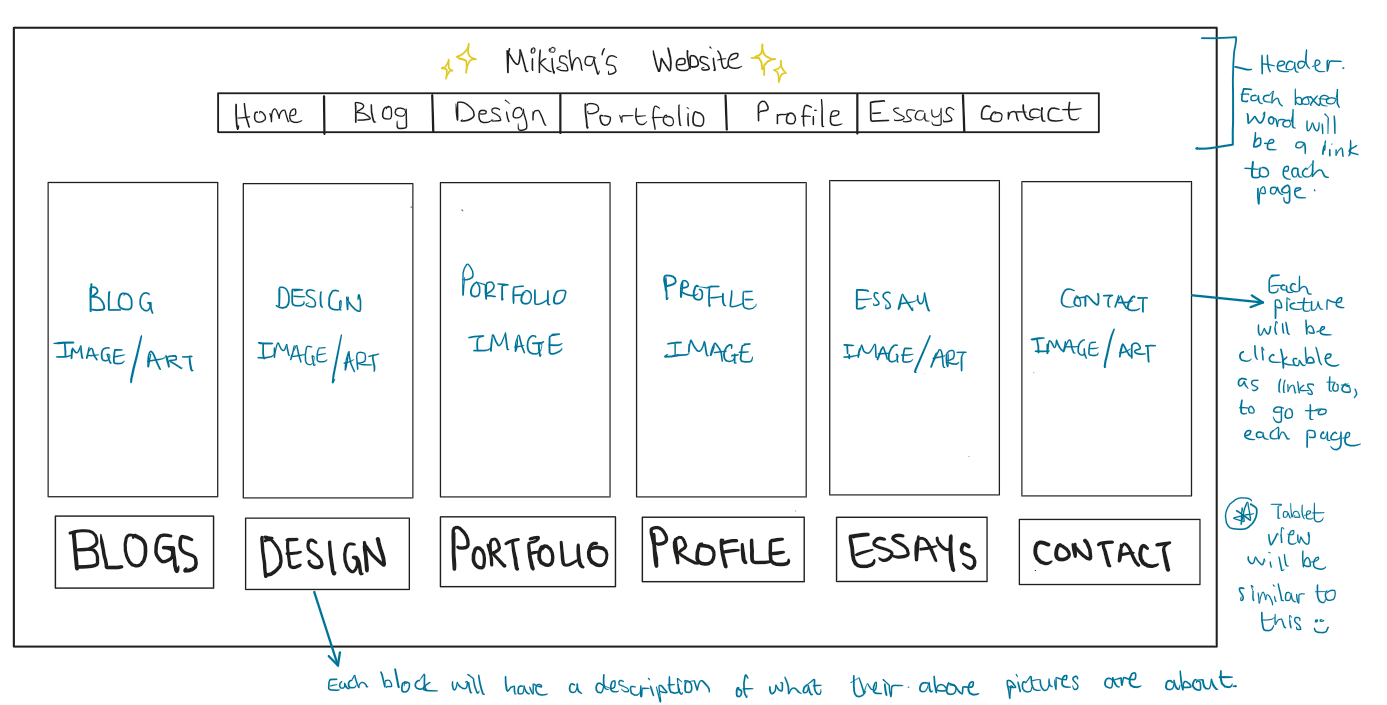 Mikisha's Website
Home Blog Design Portfolio Profile Essays Contact
Header.
Each boxed
word will
be a link
to each
page.
BLOG
IMAGE/ART
DESIGN
IMAGE/ART
PORTFOLIO
IMAGE
PROFILE
IMAGE
ESSAY
IMAGE/ART
CONTACT
IMAGE/ART
Each
picture
will be
clickable
as links too,
to go to
each page
BLOGS DESIGN PORTFOLIO PROFILE ESSAYS CONTACT
Tablet
view
will be
similar to
this
Each block will have a description of what their above pictures are about.